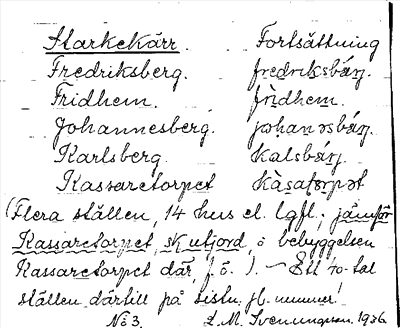 Starkekärr. Fortsättning
Fredriksberg. fredriksbärj.
Fridhem. fridhem.
Johannesberg. johanəsbärj.
Karlsberg. kalsbärj.
Kassaretorpet kasatorpət
(Flera ställen, 14 hus el. lgft.; jämför
Kassaretorpet, sk utjord, o bebyggelsen
Kassaretorpet där, f. ö. ). – Ett 40-tal
ställen därtill på sistn. jb. nummer!
No 3. 1936